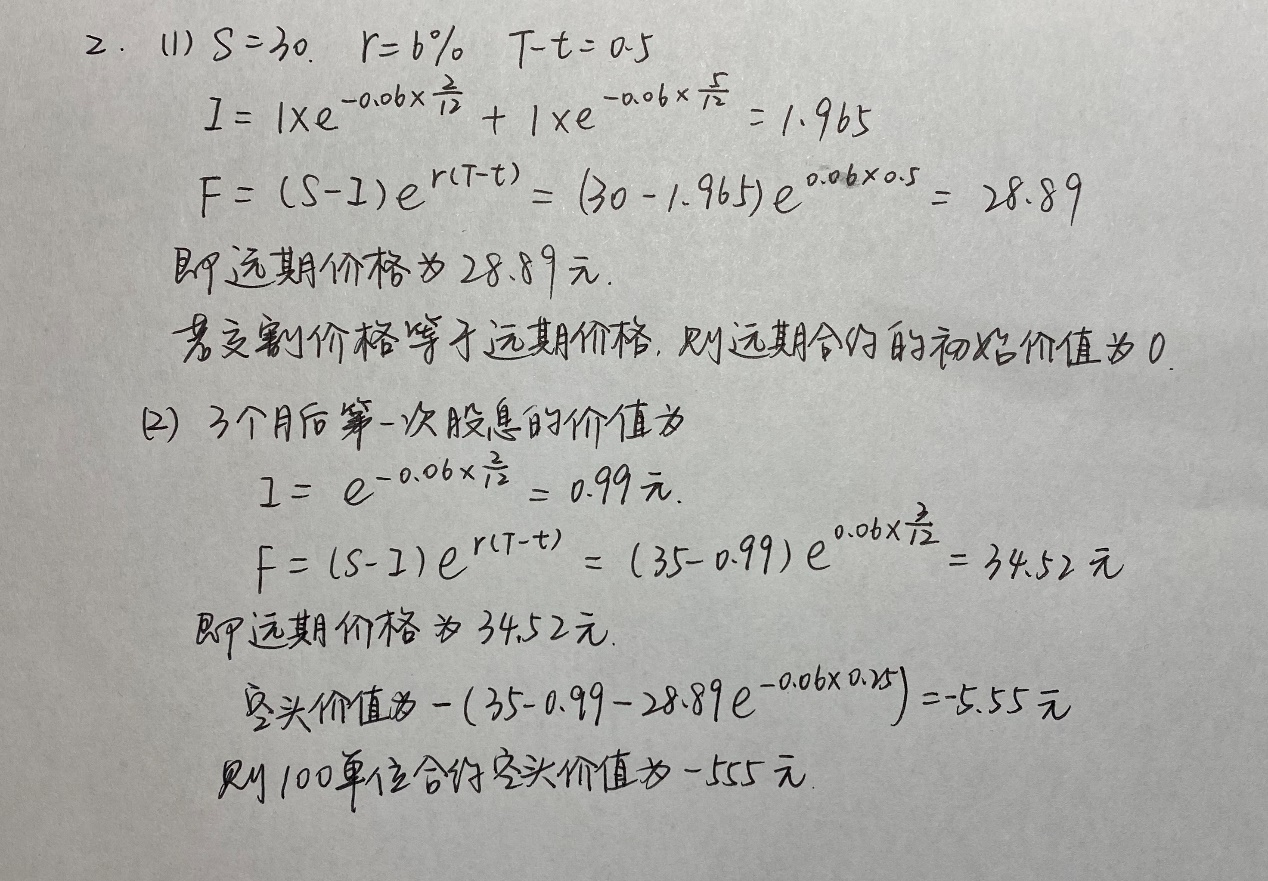 2. (1) S=30. r=6% T-t=0.5
I = 1×e^{-0.06×\frac{2}{12}} + 1×e^{-0.06×\frac{5}{12}} = 1.965
F = (S-I)e^{r(T-t)} = (30-1.965)e^{0.06×0.5} = 28.89
即远期价格为28.89元.
若交割价格等于远期价格,则远期合约的初始价值为0.
(2) 3个月后第一次股息的价值为
I = e^{-0.06×\frac{2}{12}} = 0.99元.
F = (S-I)e^{r(T-t)} = (35-0.99)e^{0.06×\frac{3}{12}} = 34.52元
即远期价格为34.52元.
空头价值为-(35-0.99-28.89e^{-0.06×0.25})=-5.55元
则100单位合约空头价值为-555元.